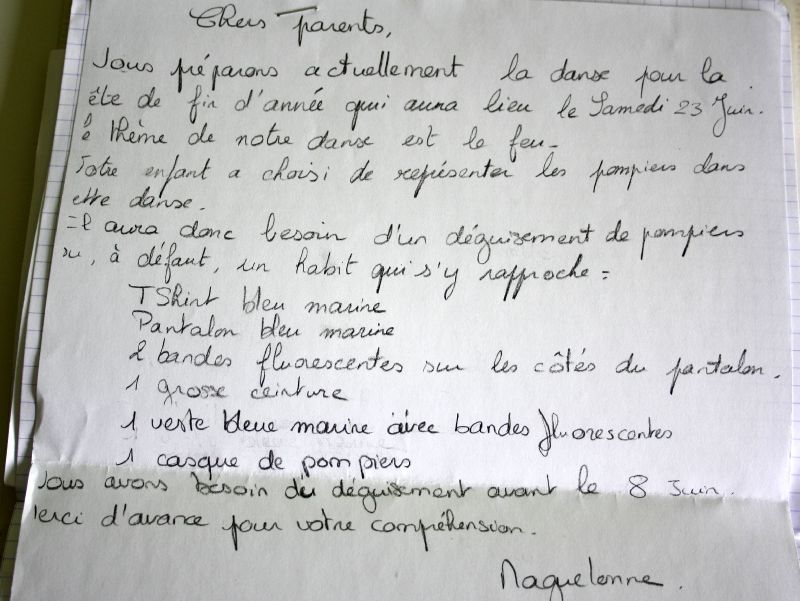 Chers parents,
Nous préparons actuellement la danse pour la
ête de fin d'année qui aura lieu le Samedi 23 Juin.
e thème de notre danse est le feu.
Votre enfant a choisi de représenter les pompiers dans
ette danse.
Il aura donc besoin d'un déguisement de pompiers
ou, à défaut, un habit qui s'y rapproche :
TShirt bleu marine
Pantalon bleu marine
2 bandes fluorescentes sur les côtés du pantalon.
1 grosse ceinture
1 veste bleue marine avec bandes fluorescentes
1 casque de pompiers
Nous avons besoin du déguisement avant le 8 Juin.
Merci d'avance pour votre compréhension.
Maguelonne.